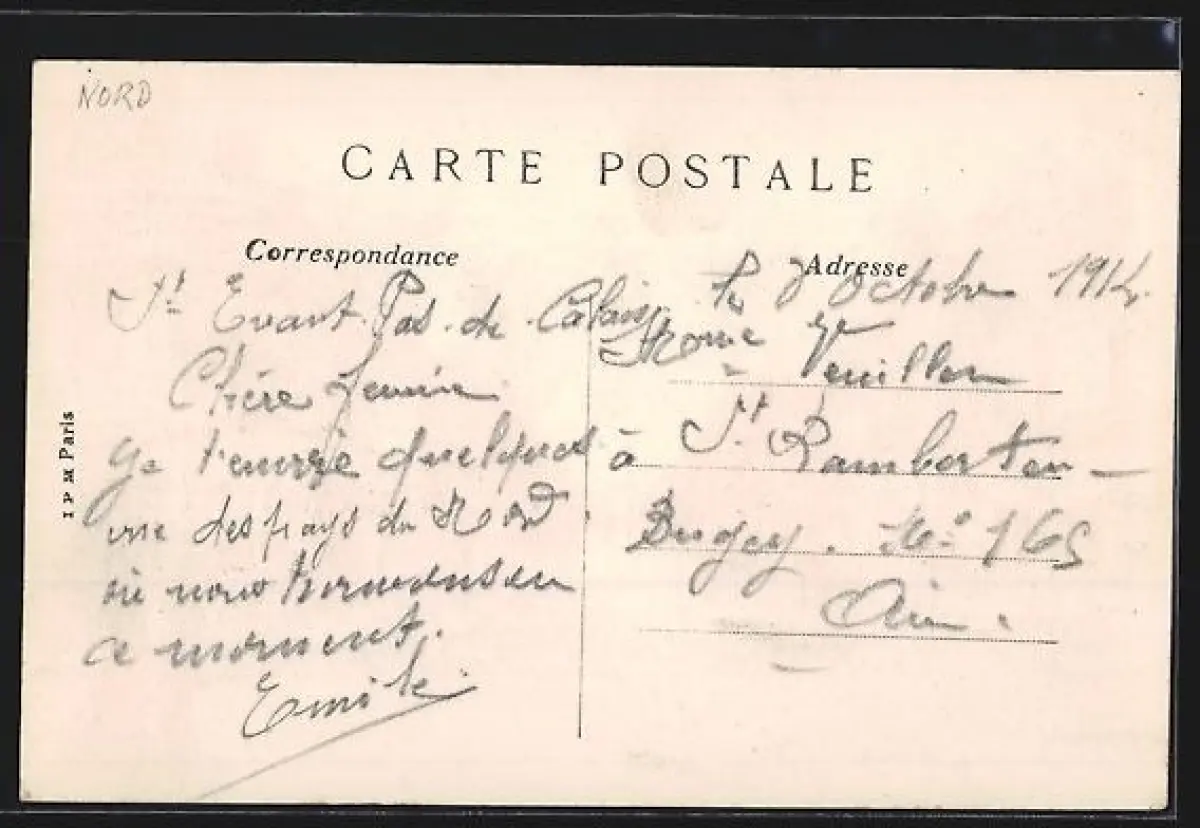 NORD
CARTE POSTALE
Correspondance
Adresse
St Evant. Pas. de. Calais, le 8 Octobre 1914.
Chère
Je t'envoie quelques
vue des pays du Nord
où nous
ce moment.
Emile.
Veuillen
à St Rambert en
Bugey. No 165
Ain.
I P M Paris